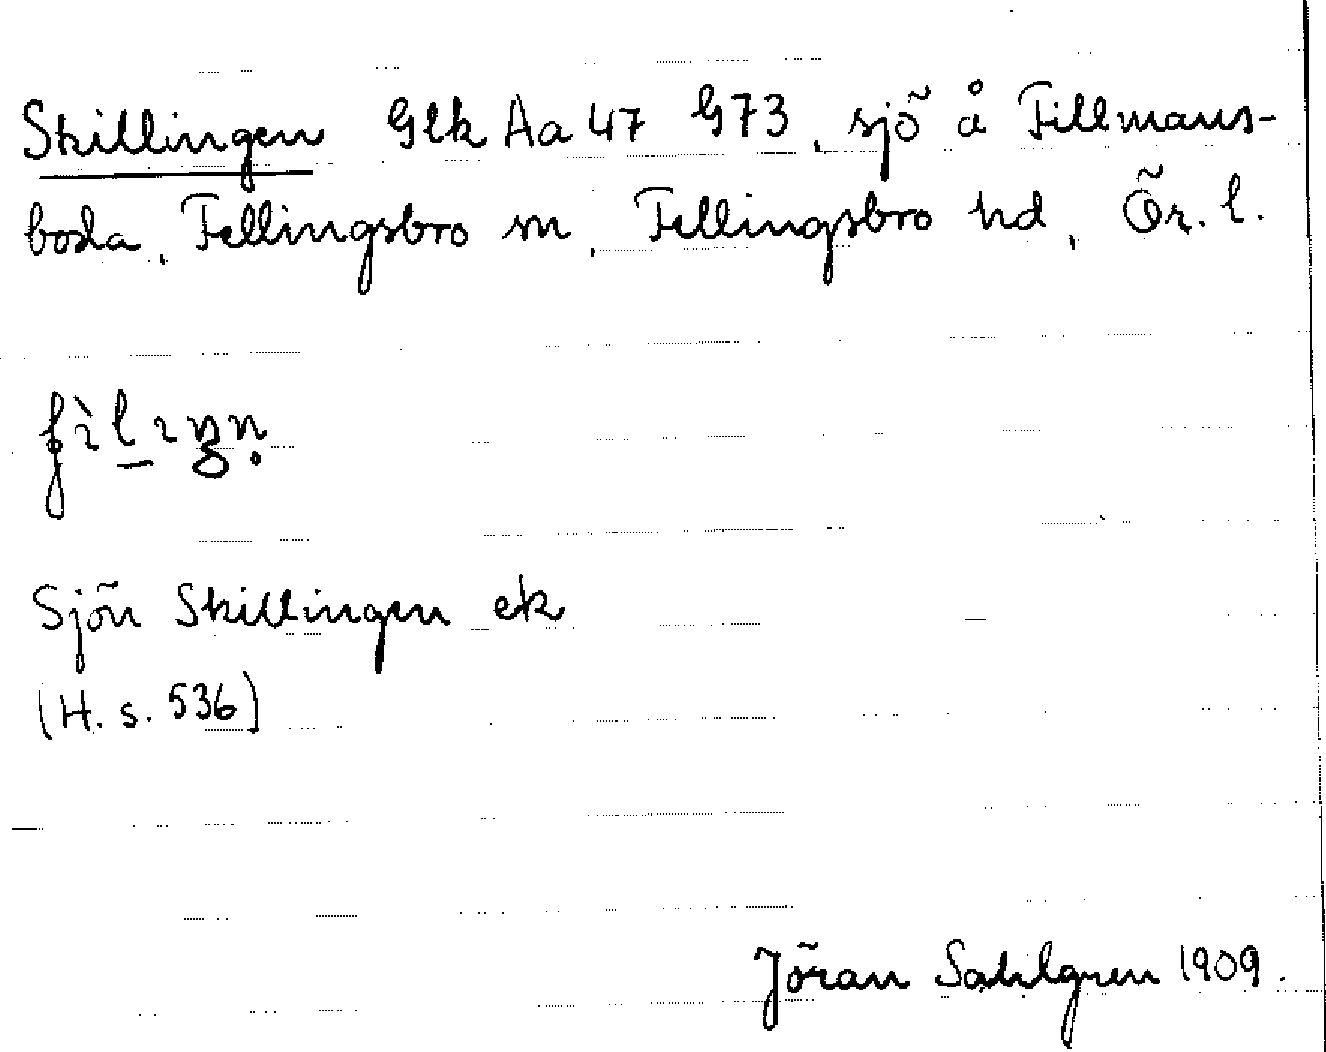 Skillingen Glk Aa 47 G73, sjö å Fillmans-
boda, Fellingsbro sn, Fellingsbro hd, Ör. l.
Sjön Skillingen ek
(H. s. 536)
Jöran Sahlgren 1909.